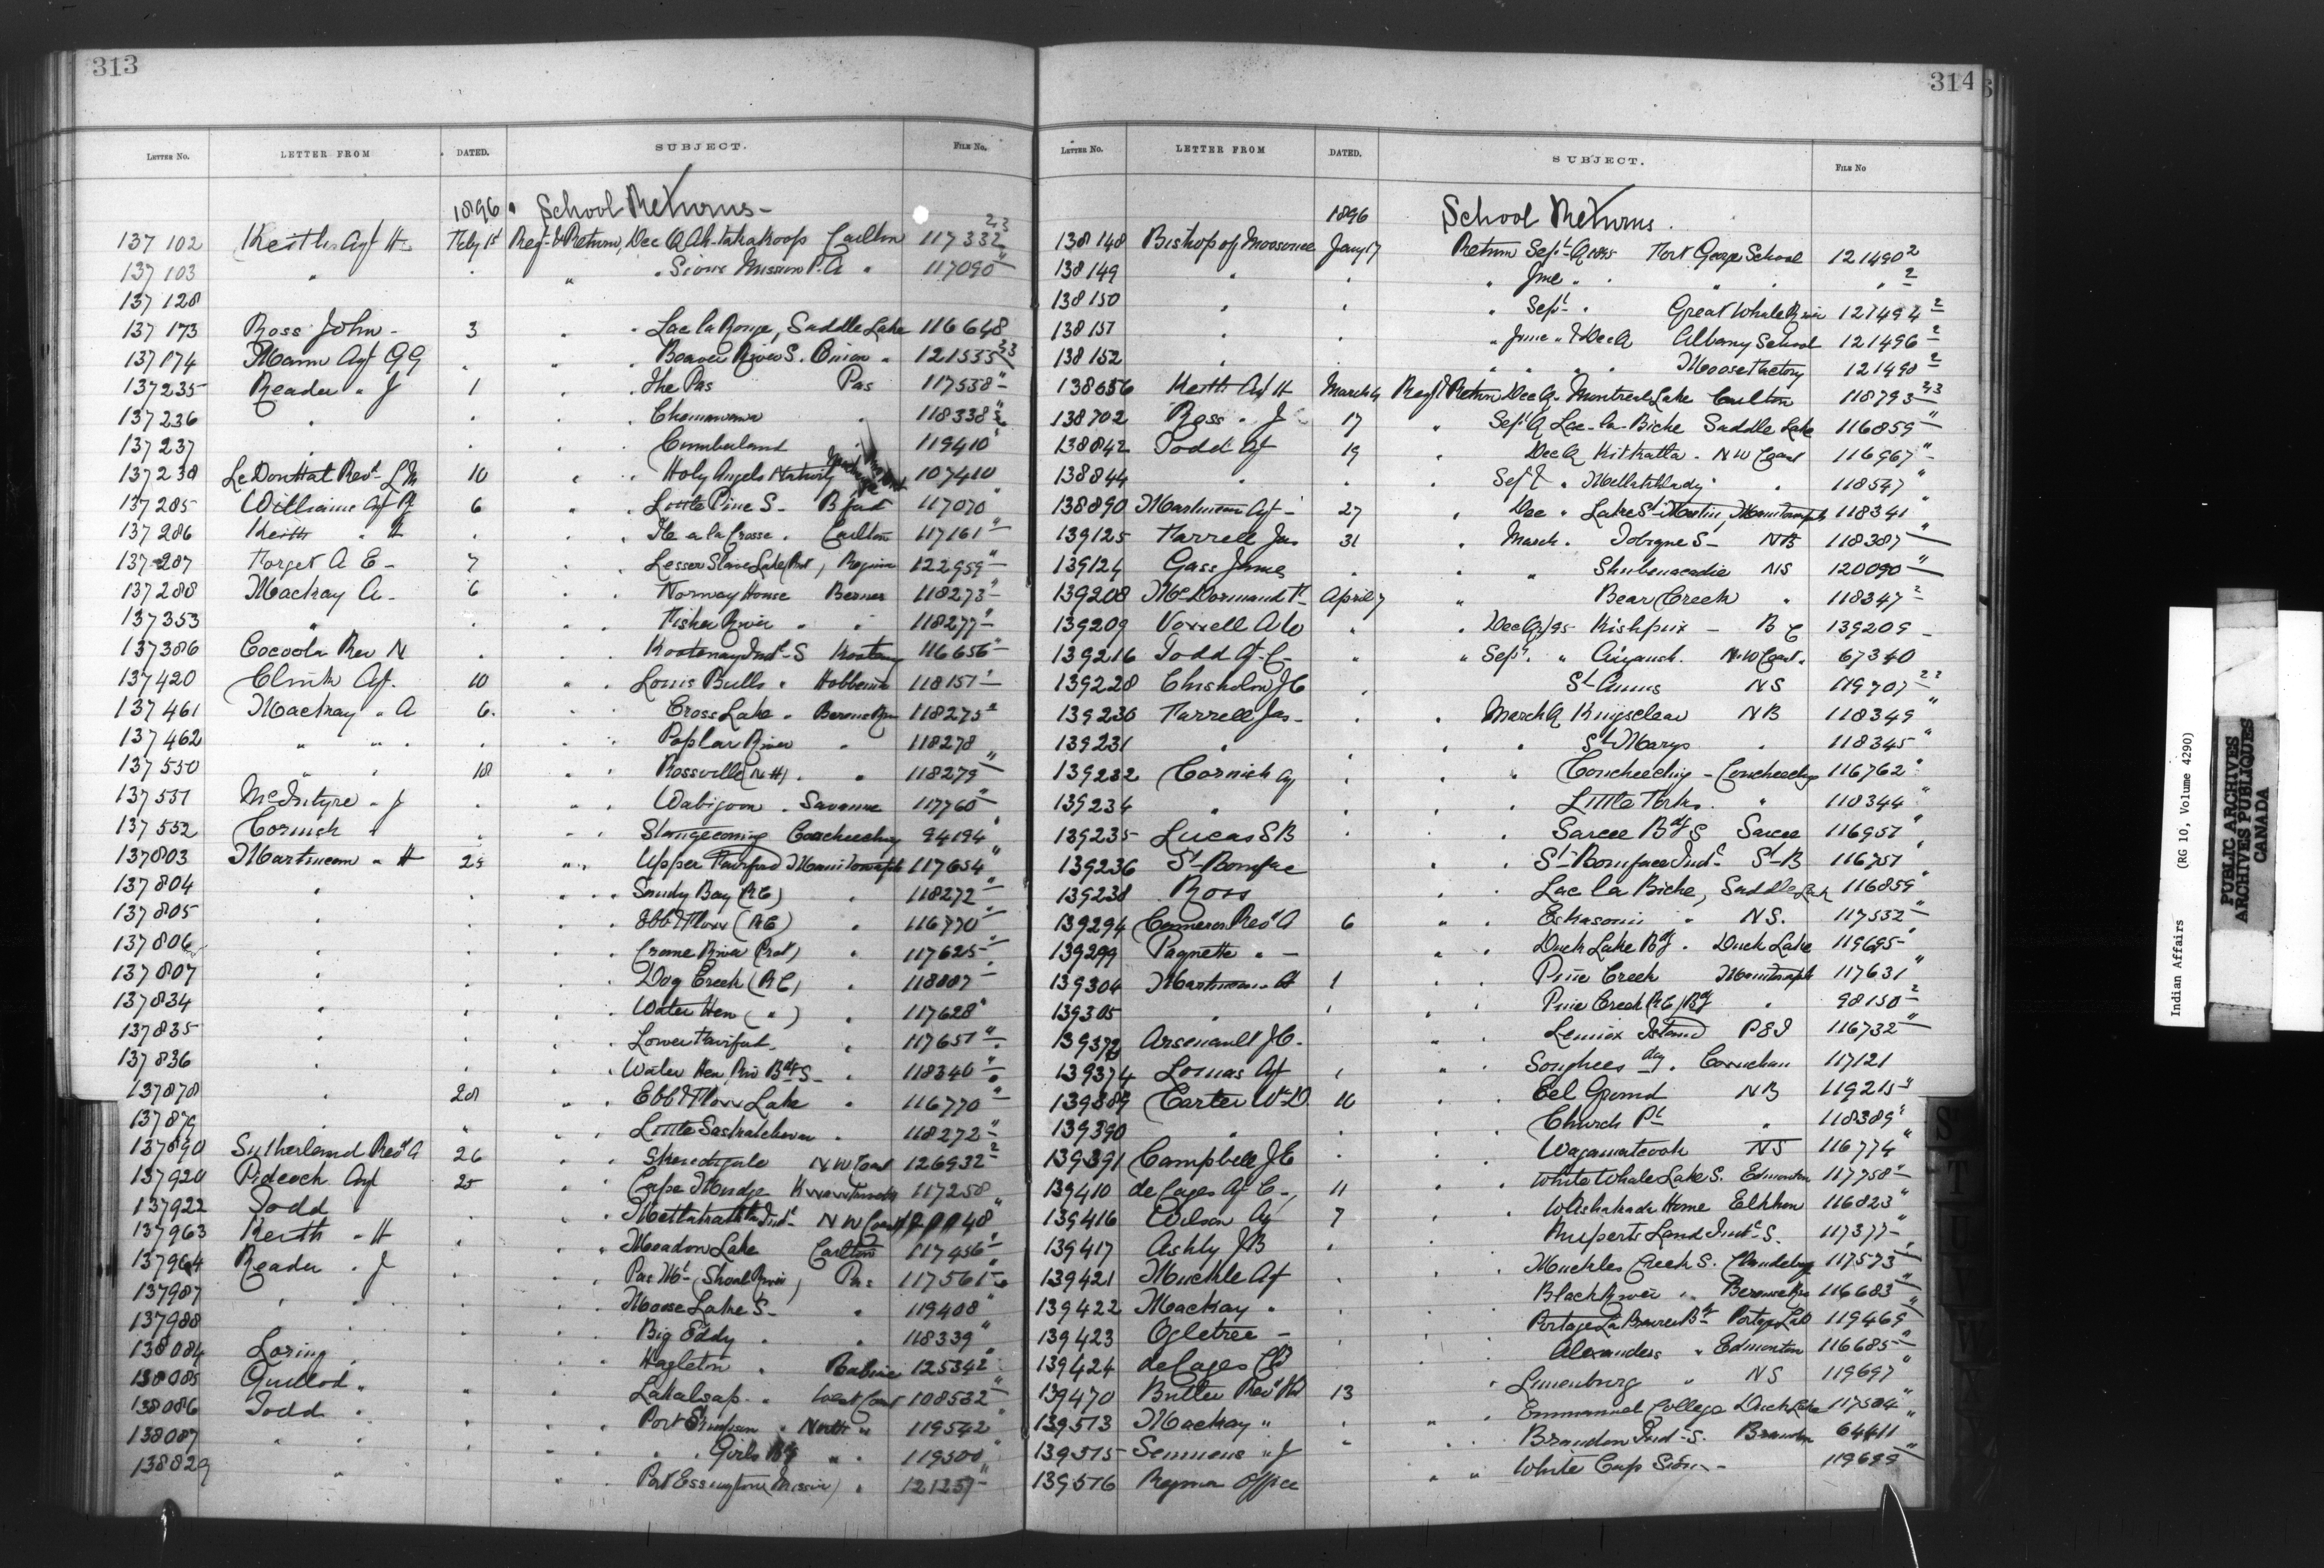 313
LETTER No. LETTER FROM DATED. SUBJECT. FILE No.
1896 School Returns -
137102 Keith Agt H Feby 1st Reg. & Return, Dec Q Ah-tahakoops Carlton 117332 2,3
137103 " " Sioux Mission P.A " 117090 "
137128
137173 Ross John - 3 Lac la Ronge, Saddle Lake 116648
137174 Mann Agt GG Beaver River S. Onion " 121535 23
137235 Reader " J 1 The Pas Pas 117538 "
137236 " Chemawawin 118338
137237 Cumberland 119410
137238 Rev. L M 10 Holy Angels Nativity 107410
137285 Williams Agt 6 Little Pine S - B ford 117070 "
137286 Keith " H Ile a la Crosse . Carlton 117161 "
137287 Forget A E - 7 Lesser Slave Lake Prot, Regina 122959 "
137288 Mackay A - 6 Norway House Berens 118273 "
137353 " Fisher River " " 118277 "
137386 Cocoola Rev N Kootenay Indl S Kootenay 116656 "
137420 Clink Agt. 10 Louis Bulls " Hobbema 118151 "
137461 Mackay " A 6. Cross Lake " Berens River 118275 2
137462 " " Poplar River " 118278
137550 " " 18 Rossville (N H) . " 118279 "
137551 McIntyre " J Wabigoon . Savanne 117760 "
137552 Cornish " Stangecoming Coucheeching 94194 "
137803 Martineau " H 25 Upper Fairford Manitowapah 117654 "
137804 " Sandy Bay (RC) 118272 "
137805 " Ebb & Flow (RC) 116770 "
137806 " Crane River (Prot) 117625 "
137807 " Dog Creek (RC) 118007 "
137834 " Water Hen ( " ) 117628 "
137835 " Lower Fairford 117651 "
137836 " Water Hen Riv Bdg S - 118340 "
137878 " 28 Ebb & Flow Lake 116770 "
137879 " Little Saskatchewan 118272 "
137890 Sutherland Revd A 26 N W Coast 126932 2
137920 Pidcock Agt 25 Cape Mudge 117258
137922 Todd " Metlakahtla Indl N W Coast
137963 Keith " H Meadow Lake Carlton 117456 "
137964 Reader " J Pas Mt (Shoal River) Pas 117561
137987 " " Moose Lake S - " 119408 "
137988 " Big Eddy . " 118339 "
138084 Loring . Hagleton " Babine 125342 "
138085 Guillod " Lakalsap " West Coast 108532 "
138086 Todd . Port Simpson " North " 119542 "
138087 " " " Girls Bdg " . 119500 "
138829 " Port Essington (Mission) " 121257 -
314
LETTER No. LETTER FROM DATED. SUBJECT. FILE No
1896 School Returns .
138148 Bishop of Moosonee Jany 17 Return Sept Q 1895 Fort George School 121490 2
138149 " June " . " 2
138150 " Sept . Great Whale River 121494 2
138151 " June " & Dec Q Albany School 121496 2
138152 " Moose Factory 121498 2
138656 Keith Agt H March 4 Reg & Return Dec Q - Montreal Lake Carlton 118793 23
138702 Ross . J 17 " Sept Q Lac-la-Biche Saddle Lake 116859 "
138842 Todd Agt 19 Dec Q Kitkatla . N W Coast 116967 "
138844 " Sept " 118547 "
138890 Martineau Agt - 27 Dec " Lake St Martin, Manitowapah 118341 "
139125 Farrell Jas 31 March . Tobique S - NB 118387 "
139129 Gass James " Shubenacadie NS 120090 "
139208 McDormand F April 7 " Bear Creek " 118347 2
139209 Vowell A W Dec Q/95 Kishpiix - B C 139209 -
139216 Todd Agt C - " Sept. " Aiyansh . N.W Coast . 67340
139228 Chisholm J C St Anns NS 119707 22
139230 Farrell Jas - March Q Kingsclear NB 118349 "
139231 " St Marys . 118345 "
139232 Cornish Ag " Coucheeching - Coucheeching 116762 "
139234 " Little Forks . " 118344 "
139235 Lucas S B Sarcee Bdg S Sarcee 116951 "
139236 St Boniface St Boniface Indl - St B 116751 "
139238 Ross Lac la Biche, Saddle Lak 116859 "
139294 Cameron Revd A 6 Eskasoni " NS. 117532 "
139299 Paquette " - Duck Lake Bdg . Duck Lake 119695 "
139304 Martineau H 1 Pine Creek Manitowapah 117631 "
139305 " Pine Creek (R C) Bdg " 98150 2
139372 Arsenault J C. Lennox Island P E I 116732 "
139374 Lomas Agt Songhees dy . Cowichan 117121
139389 Carter Wm D. 10 Eel Ground NB 119215 "
139390 " Church Pt " 118389 "
139391 Campbell J E Wagamatcook NS 116774 "
139410 de Cazes Agt C -, 11 White Whale Lake S. Edmonton 117758 "
139416 Wilson Ag 7 Washakada Home Elkhorn 116823 "
139417 Ashby J B Ruperts Land Indl - S. 117377 "
139421 Muckle Agt Muckles Creek S. Clandeboye 117573 "
139422 Mackay . Black River .. Berens River 116683 "
139423 Ogletree - Portage La Prairie Bdg Portage La P 119469 "
139424 de Cazes Cl Alexanders " Edmonton 116685 "
139470 Butler Revd 13 Lunenburg " NS 119697 "
139513 Mackay " Emmanuel College Duck Lake 117504 "
139515 Semmens " J " Brandon Indl - S. Brandon 64411 "
139516 Regina Office " White Cap Sioux - 119699 "
Indian Affairs (RG 10, Volume 4290)
PUBLIC ARCHIVES
ARCHIVES PUBLIQUES
CANADA
S
T
U
V
W